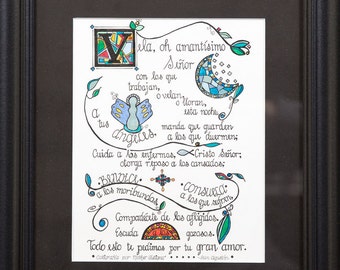 Vela, oh amantísimo
Señor
con los que
trabajan,
o velan,
o lloran,
esta noche,
a tus ángeles
manda que guarden
a los que duermen;
Cuida a los enfermos, Cristo Señor;
otorga reposo a los cansados;
Bendice
a los moribundos
Consuela
a los que sufren,
Compadécete de los afligidos,
Escuda gozosos.
Todo esto te pedimos por tu gran amor.